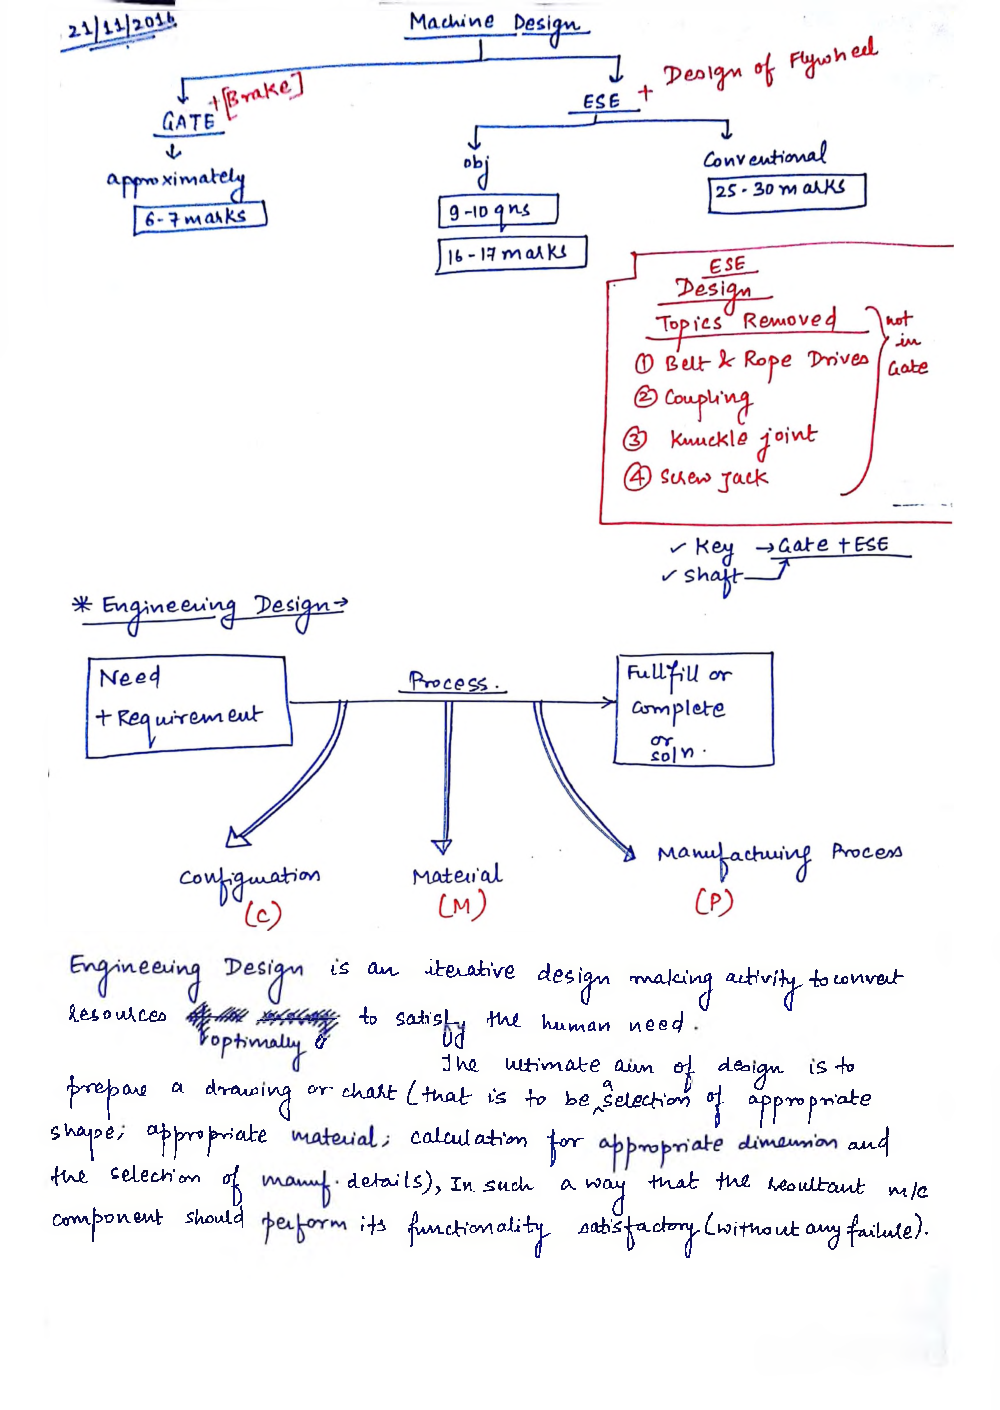 21/11/2016
Machine Design
GATE +[Brake]
ESE + Design of Flywheel
approximately
6-7 marks
obj
9-10 qns
16-17 marks
Conventional
25-30 marks
ESE
Design
Topics Removed
① Belt & Rope Drives
② Coupling
③ Knuckle joint
④ Screw Jack
not
in
Gate
✓ Key → Gate + ESE
✓ Shaft
* Engineering Design →
Need
+ Requirement
Process.
Fullfill or
complete
or
soln.
Configuration
(C)
Material
(M)
Manufacturing Process
(P)
Engineering Design is an iterative design making activity to convert
resources to satisfy the human need.
optimally
The ultimate aim of design is to
prepare a drawing or chart (that is to be a selection of appropriate
shape; appropriate material; calculation for appropriate dimension and
the selection of manuf. details), In such a way that the resultant m/c
component should perform its functionality satisfactory (without any failure).